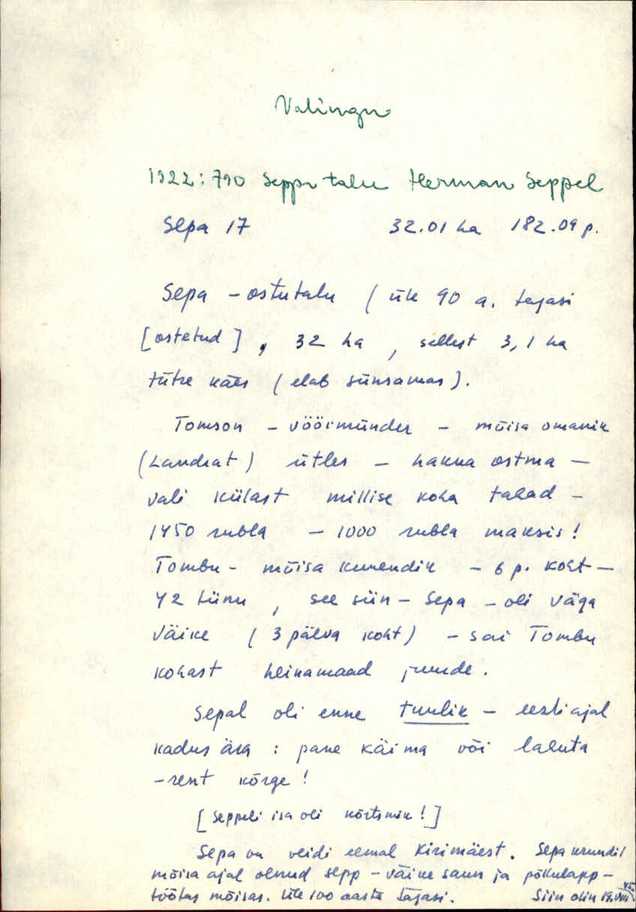 Valingu
1922: 790 Seppa talu Herman Seppel
Sepa 17 32.01 ha 182.09 p.
Sepa - ostutalu ( üle 90 a. tagasi
[ostetud], 32 ha, sellest 3,1 ha
tütre käes (elab siinsamas).
Tomson - vöörmünder - mõisa omanik
(Landrat) ütles - hakka ostma -
vali külast millise koha tahad -
1450 rubla - 1000 rubla maksis!
Tombu - mõisa - 6 p. koht -
42 tiinu, see siin - Sepa - oli väga
väike (3 päeva koht) - sai Tombu
kohast heinamaad juurde.
Sepal oli enne tuulik - eesti ajal
kadus ära : pane käima või lahuta
- rent kõrge!
[Seppeli isa oli kõrtsmik!]
Sepa on veidi eemal Kirimäest. Sepa krundil
mõisa ajal olnud sepp - väike saun ja põllulapp -
töötas mõisas. Üle 100 aasta tagasi. Siin olin